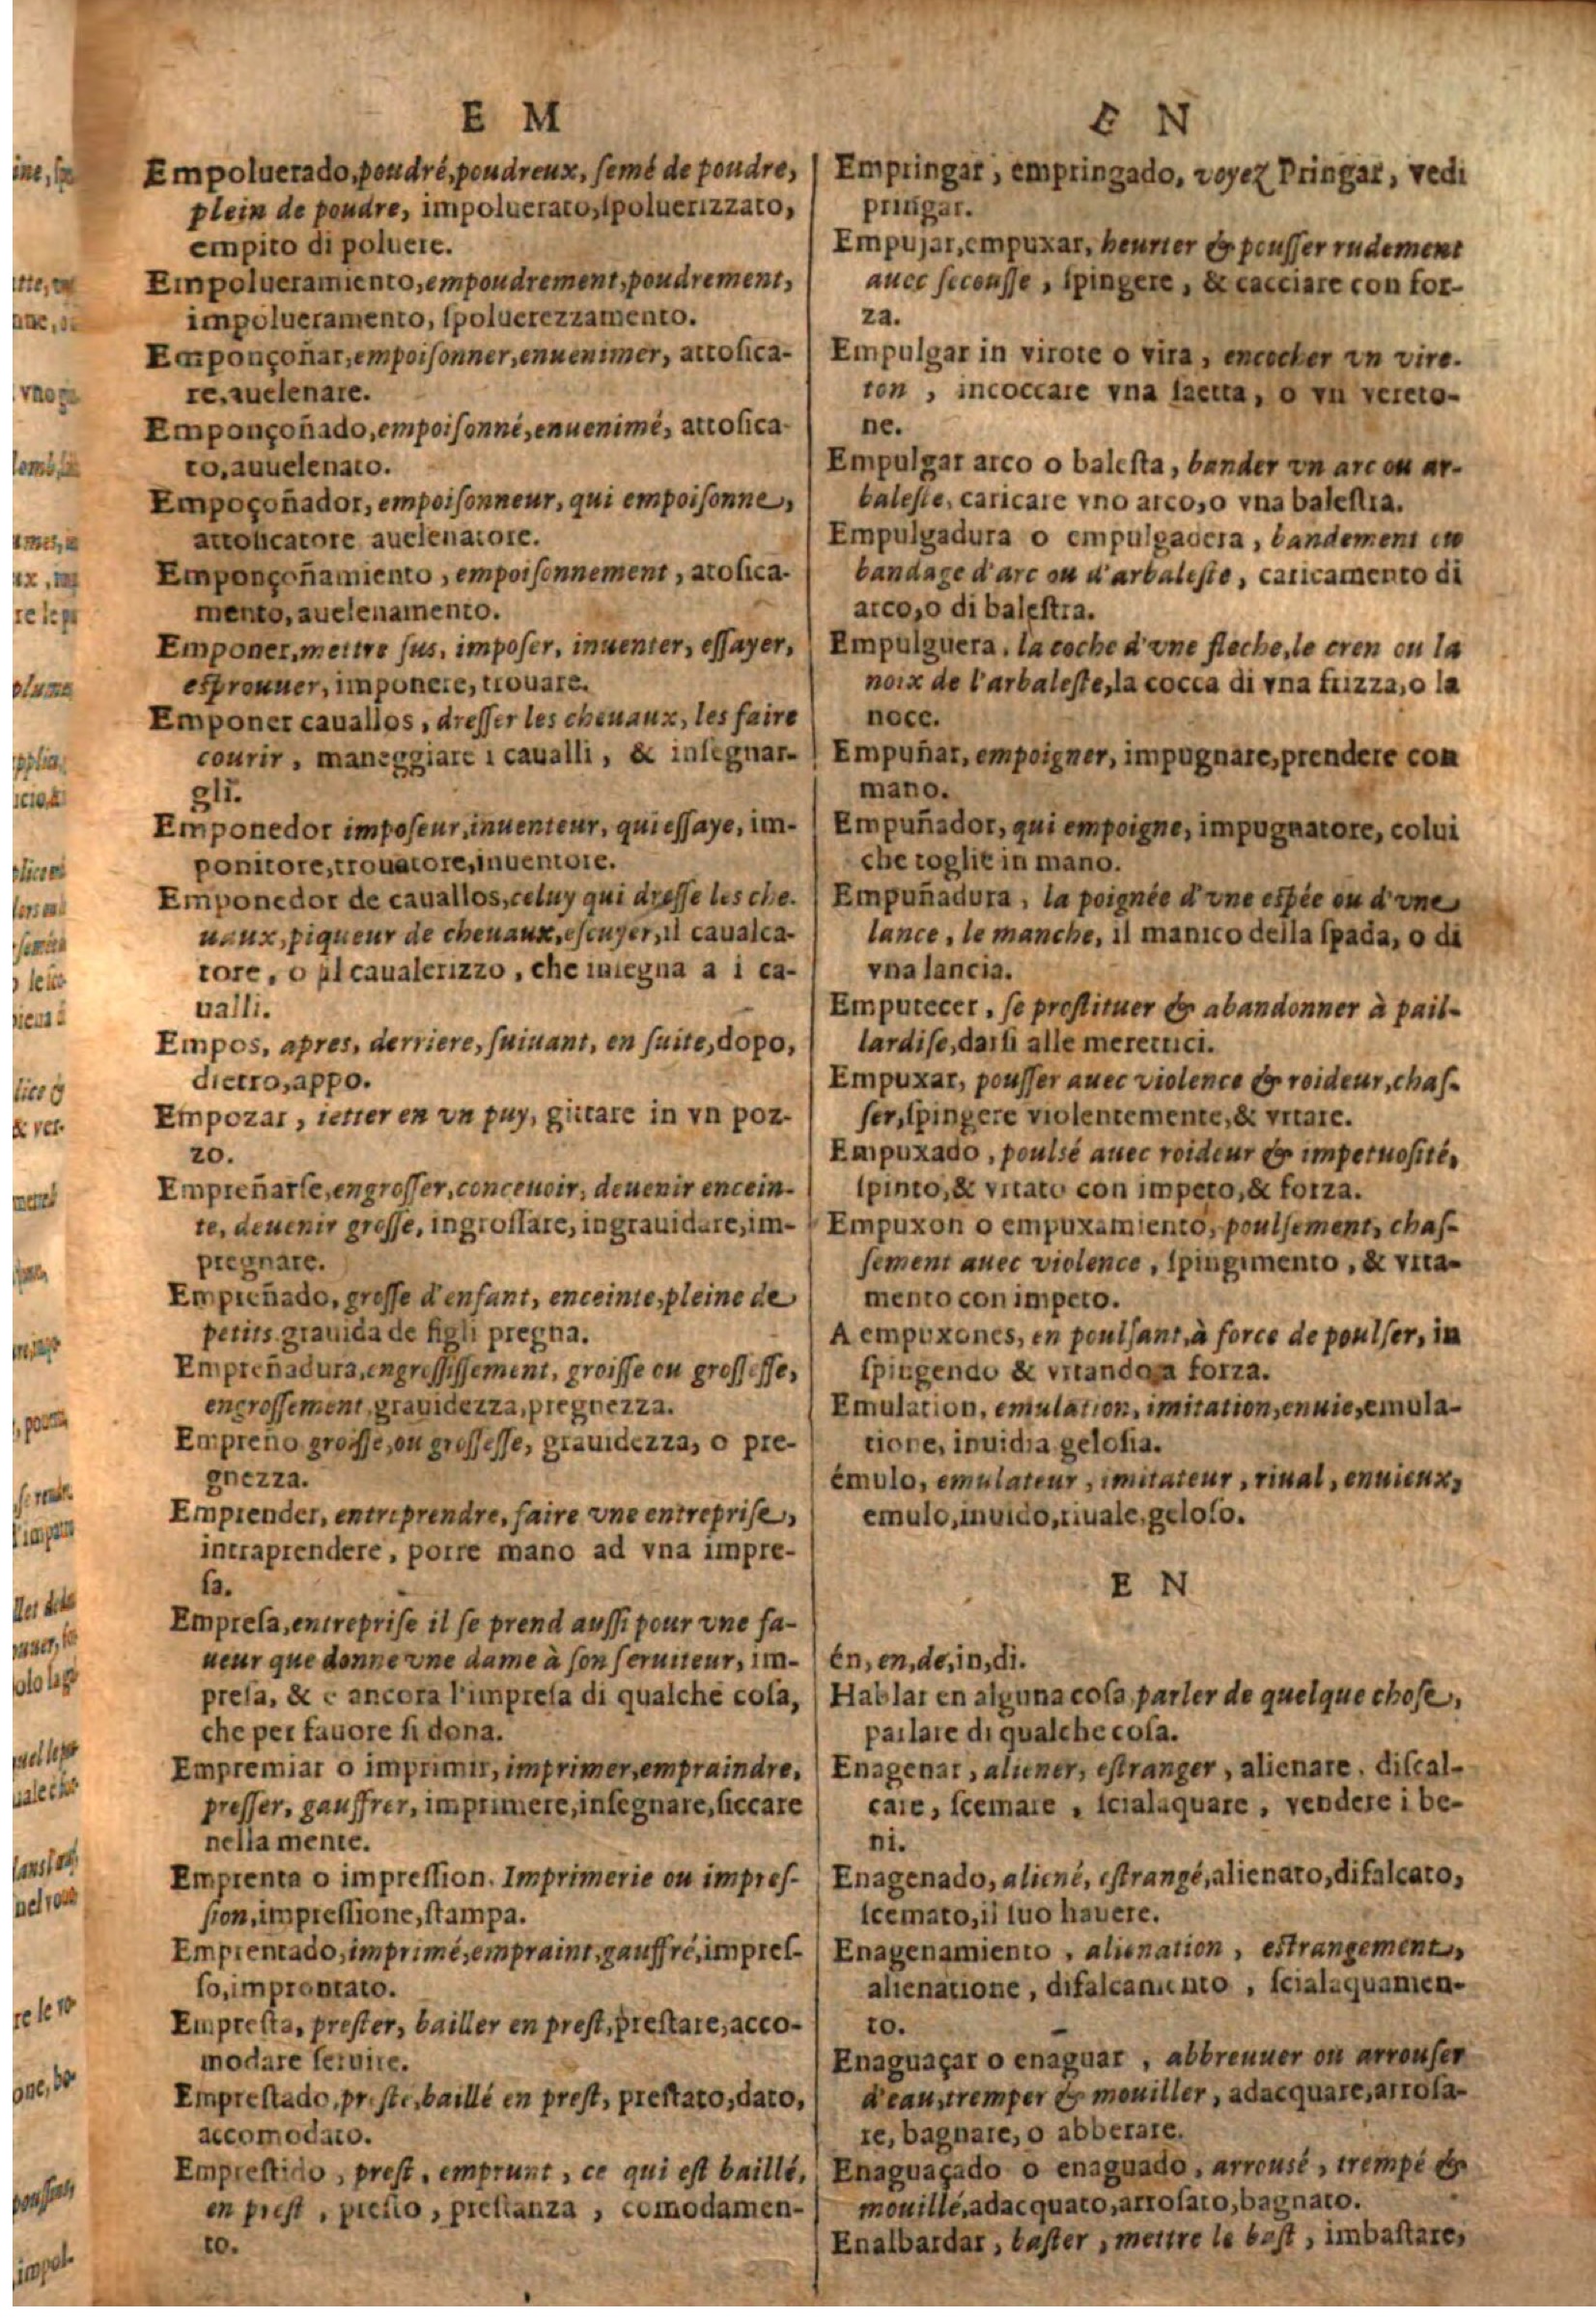 E M
Empoluerado, poudré, poudreux, semé de poudre,
plein de poudre, impoluerato, spoluerizzato,
empito di poluere.
Empolueramiento, empoudrement, poudrement,
impolueramento, spoluerezzamento.
Emponçoñar, empoisonner, enuenimer, attosica-
re, auelenare.
Emponçoñado, empoisonné, enuenimé, attosica-
to, auuelenato.
Empoçoñador, empoisonneur, qui empoisonne,
attosicatore auelenatore.
Emponçoñamiento, empoisonnement, atosica-
mento, auelenamento.
Emponer, mettre sus, imposer, inuenter, essayer,
esprouuer, imponere, trouare.
Emponer cauallos, dresser les cheuaux, les faire
courir, maneggiare i caualli, & insegnar-
gli.
Emponedor imposeur, inuenteur, qui essaye, im-
ponitore, trouatore, inuentore.
Emponedor de cauallos, celuy qui dresse les che-
uaux, piqueur de cheuaux, escuyer, il caualca-
tore, o il caualerizzo, che insegna a i ca-
ualli.
Empos, apres, derriere, suiuant, en suite, dopo,
dietro, appo.
Empozar, ietter en vn puy, gittare in vn poz-
zo.
Empreñarse, engrosser, conceuoir, deuenir encein-
te, deuenir grosse, ingrossare, ingrauidare, im-
pregnare.
Empreñado, grosse d'enfant, enceinte, pleine de
petits grauida de figli pregna.
Empreñadura, engrossissement, groisse ou grossesse,
engrossement, grauidezza, pregnezza.
Empreño groisse, ou grossesse, grauidezza, o pre-
gnezza.
Emprender, entreprendre, faire vne entreprise,
intraprendere, porre mano ad vna impre-
sa.
Empresa, entreprise il se prend aussi pour vne fa-
ueur que donne vne dame à son seruiteur, im-
presa, & e ancora l'impresa di qualche cosa,
che per fauore si dona.
Empremiar o imprimir, imprimer, empraindre,
presser, gauffrer, imprimere, insegnare, ficcare
nella mente.
Emprenta o impression. Imprimerie ou impres-
sion, impressione, stampa.
Emprentado, imprimé, empraint, gauffré, impres-
so, improntato.
Empresta, prester, bailler en prest, prestare, acco-
modare seruire.
Emprestado, presté, baillé en prest, prestato, dato,
accomodato.
Emprestido, prest, emprunt, ce qui est baillé,
en prest, presto, prestanza, comodamen-
to.
E N
Empringar, empringado, voyez Pringar, vedi
pringar.
Empujar, empuxar, heurter & pousser rudement
auec secousse, spingere, & cacciare con for-
za.
Empulgar in virote o vira, encocher vn vire-
ton, incoccare vna saetta, o vn vereto-
ne.
Empulgar arco o balesta, bander vn arc ou ar-
baleste, caricare vno arco, o vna balestra.
Empulgadura o empulgadera, bandement ou
bandage d'arc ou d'arbaleste, caricamento di
arco, o di balestra.
Empulguera, la coche d'vne fleche, le cren ou la
noix de l'arbaleste, la cocca di vna frizza, o la
noce.
Empuñar, empoigner, impugnare, prendere con
mano.
Empuñador, qui empoigne, impugnatore, colui
che toglie in mano.
Empuñadura, la poignée d'vne espée ou d'vne
lance, le manche, il manico della spada, o di
vna lancia.
Emputecer, se prostituer & abandonner à pail-
lardise, darsi alle meretrici.
Empuxar, pousser auec violence & roideur, chas-
ser, spingere violentemente, & vrtare.
Empuxado, poulsé auec roideur & impetuosité,
spinto, & vrtato con impeto, & forza.
Empuxon o empuxamiento, poulsement, chas-
sement auec violence, spingimento, & vrta-
mento con impeto.
A empuxones, en poulsant, à force de poulser, in
spingendo & vrtando a forza.
Emulation, emulation, imitation, enuie, emula-
tione, inuidia gelosia.
émulo, emulateur, imitateur, riual, enuieux,
emulo, inuido, riuale, geloso.
E N
én, en, de, in, di.
Hablar en alguna cosa parler de quelque chose,
parlare di qualche cosa.
Enagenar, aliener, estranger, alienare, discal-
care, scemare, scialaquare, vendere i be-
ni.
Enagenado, aliené, estrangé, alienato, difalcato,
scemato, il suo hauere.
Enagenamiento, alienation, estrangement,
alienatione, difalcamento, scialaquamen-
to.
Enaguaçar o enaguar, abbreuuer ou arrouser
d'eau, tremper & mouiller, adacquare, arrosa-
re, bagnare, o abberare.
Enaguaçado o enaguado, arrousé, trempé &
mouillé, adacquato, arrosato, bagnato.
Enalbardar, baster, mettre le bast, imbastare,